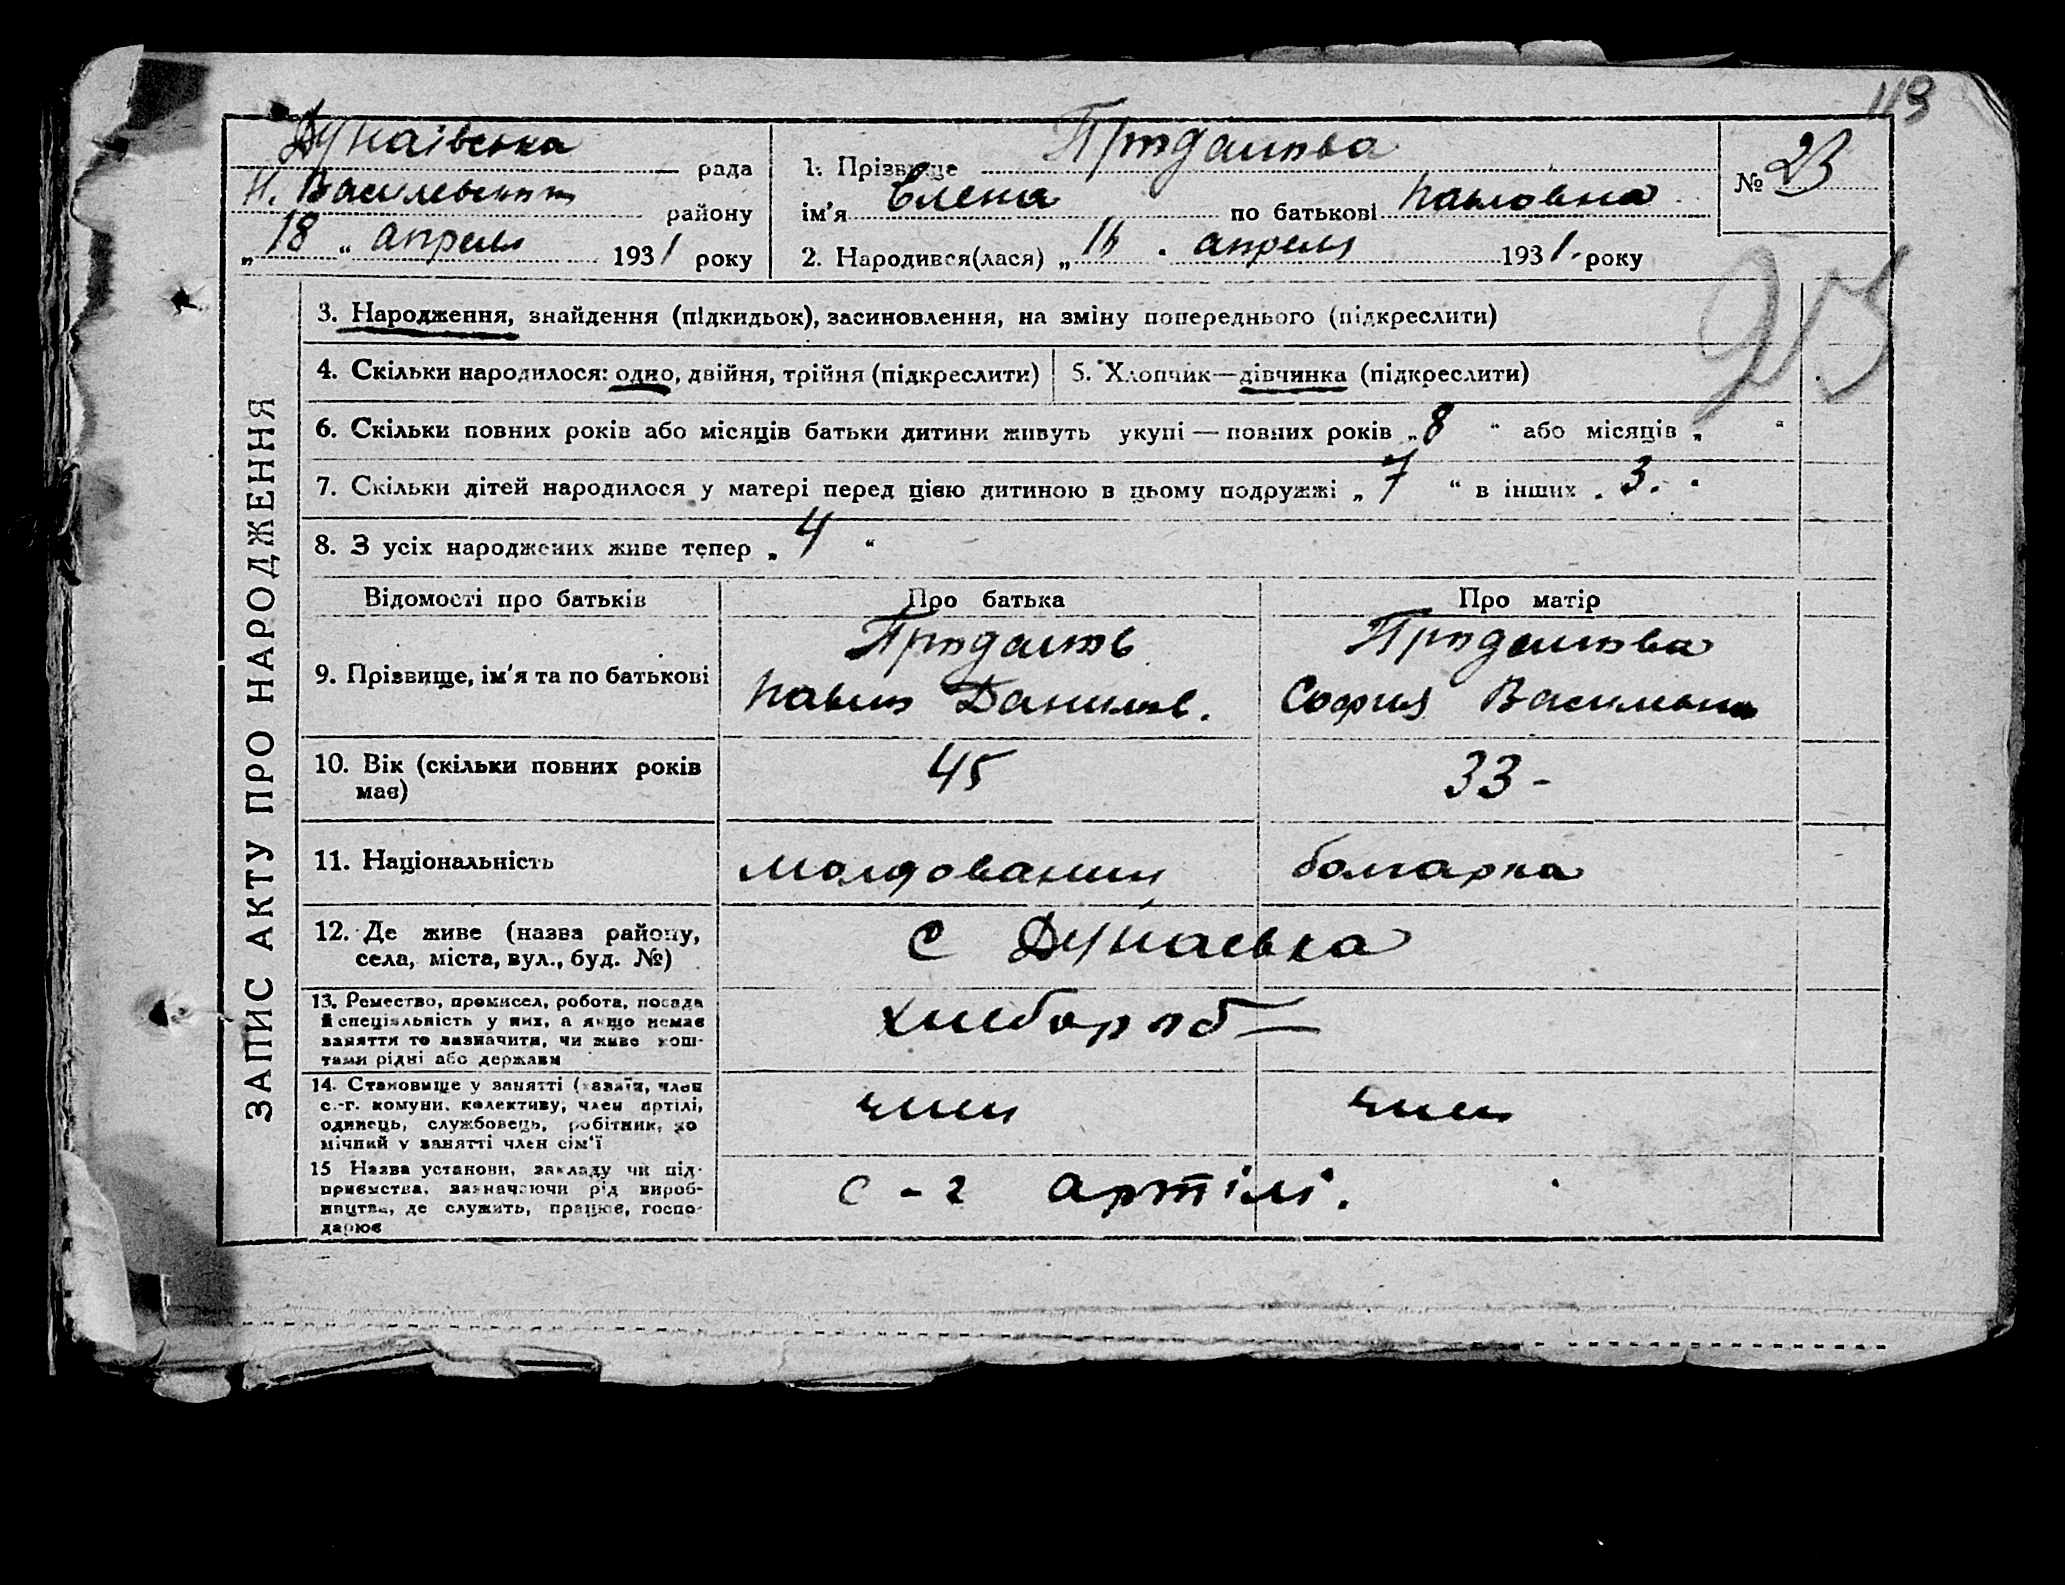 113
Дунаївська рада
Н. Василевського району
„ 18 “ апреля 1931 року
1. Прізвище
ім’я Елена по батькові Павловна
2. Народився(лася) „ 16 . апреля 1931. року
№ 23
ЗАПИС АКТУ ПРО НАРОДЖЕННЯ
3. Народження, знайдення (підкидьок), засиновлення, на зміну попереднього (підкреслити)
4. Скільки народилося: одно, двійня, трійня (підкреслити)
5. Хлопчик—дівчинка (підкреслити)
6. Скільки повних років або місяців батьки дитини живуть укупі — повних років „ 8 “ або місяців „ “
7. Скільки дітей народилося у матері перед цією дитиною в цьому подружжі „ 7 “ в інших „ 3. “
8. З усіх народжених живе тепер „ 4 “
Відомості про батьків Про батька Про матір
9. Прізвище, ім’я та по батькові
Павел Данилов.
София Васильевна
10. Вік (скільки повних років
має)
45 33 -
11. Національність молдованин болгарка
12. Де живе (назва району,
села, міста, вул., буд. №)
с Дунаевка
13. Ремество, промисел, робота, посада
й спеціяльність у них, а якщо немає
заняття то зазначити, чи живе кош-
тами рідні або держави
хлебороб —
14. Становище у занятті (хазяїн, член
с.-г. комуни, колективу, член артілі,
одинець, службовець, робітник, по
мічний у занятті член сім’ї
член член
15 Назва установи, закладу чи під-
приємства, зазначаючи рід вироб-
ництва, де служить, працює, госпо-
дарює
с - г артілі.